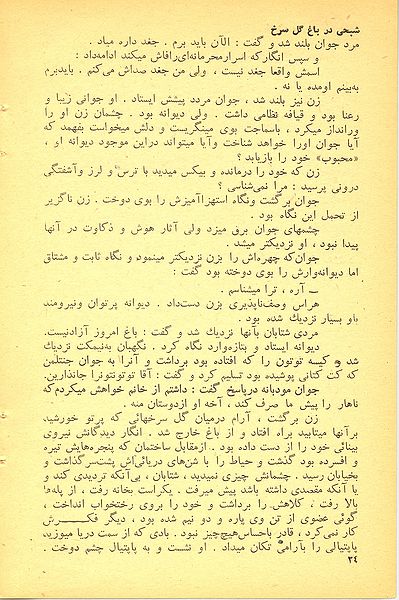 شبحی در باغ گل سرخ
مرد جوان بلند شد و گفت : الآن باید برم . جغد داره میاد .
و سپس انگار که اسرار محرمانه‌ای را فاش میکند ادامه داد :
اسمش واقعا جغد نیست ، ولی من جغد صداش می‌کنم . باید برم
به‌بینم اومده یا نه .
زن نیز بلند شد ، جوان مردد پیشش ایستاد . او جوانی زیبا و
رعنا بود و قیافه نظامی داشت . ولی دیوانه بود . چشمان زن او را
ورانداز میکرد ، باسماجت بوی مینگریست و دلش میخواست بفهمد که
آیا جوان اورا خواهد شناخت و آیا میتواند در این موجود دیوانه او ،
«محبوب» خود را بازیابد ؟
زن که خود را درمانده و بیکس میدید با ترس و لرز و آشفتگی
درونی پرسید : مرا نمی‌شناسی ؟
جوان برگشت و نگاه استهزاآمیزش را بوی دوخت . زن ناگزیر
از تحمل این نگاه بود .
چشمهای جوان برق میزد ولی آثار هوش و ذکاوت در آنها
پیدا نبود ، او نزدیکتر میشد .
جوان که چهره‌اش را بزن نزدیکتر مینمود و نگاه ثابت و مشتاق
اما دیوانه‌وارش را بوی دوخته بود گفت :
— آره ، ترا میشناسم .
هراس وصف‌ناپذیری بزن دست‌داد . دیوانه پرتوان و نیرومند
باو بسیار نزدیك شده بود .
مردی شتابان بآنها نزدیك شد و گفت : باغ امروز آزادنیست.
دیوانه ایستاد و بتازه‌وارد نگاه کرد . نگهبان به‌نیمکت نزدیك
شد و کیسه توتون را که افتاده بود برداشت و آنرا به جوان جنتلمن
که کت کتانی پوشیده بود تسلیم کرد و گفت : آقا توتونتونرا جاندارین.
جوان مودبانه درپاسخ گفت : داشتم از خانم خواهش میکردم که
ناهار را پیش ما صرف کند ، آخه او ازدوستان منه .
زن برگشت ، آرام درمیان گل سرخهائی که پرتو خورشید
برآنها میتابید براه افتاد و از باغ خارج شد . انگار دیدگانش نیروی
بینائی خود را از دست داده بود . ازمقابل ساختمان که پنجره‌هایش تیره
و افسرده بود گذشت و حیاط را با شن‌های دریائی‌اش پشت‌سرگذاشت و
بخیابان رسید . چشمانش چیزی نمیدید ، شتابان ، بی‌آنکه تردیدی کند و
یا آنکه مقصدی داشته باشد پیش میرفت . یکراست بخانه رفت ، از پله‌ها
بالا رفت ، کلاهش را برداشت و خود را بروی رختخواب انداخت ،
گوئی عضوی از تن وی پاره و دو نیم شده بود ، دیگر فکـــرش
کار نمی‌کرد ، قادر باحساس هیچ‌چیز نبود . بادی که از سمت دریا میوزید
پاپیتالی را بآرامی تکان میداد . او نشست و به پاپیتال چشم دوخت .
۳۴